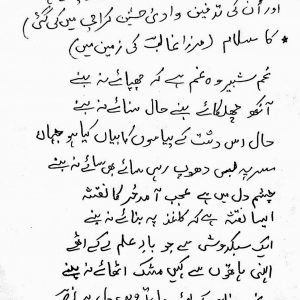 اور اُن کی تدفین وادیٔ حسینؑ کراچی میں کی گئی)
* کا سلام (مرزا غالبؔ کی زمین میں)
غمِ شبیرؑ وہ غم ہے کہ چھپائے نہ بنے
آنکھ چھلکائے بنے حال سنائے نہ بنے
حال اس دشت کے پیاسوں کا بیاں کیا ہو جہاں
سر پہ تھی دھوپ رہی سائے بھی سائے نہ بنے
چشمِ دل میں ہے عجب آمدِ حُر کا نقشہ
ایسا نقشہ ہے کہ کاغذ پہ بنائے نہ بنے
ایک سبکدوشی سے جو بارِ علم لے کے اٹھے
انہی ہاتھوں سے کہیں مشک اٹھائے نہ بنے